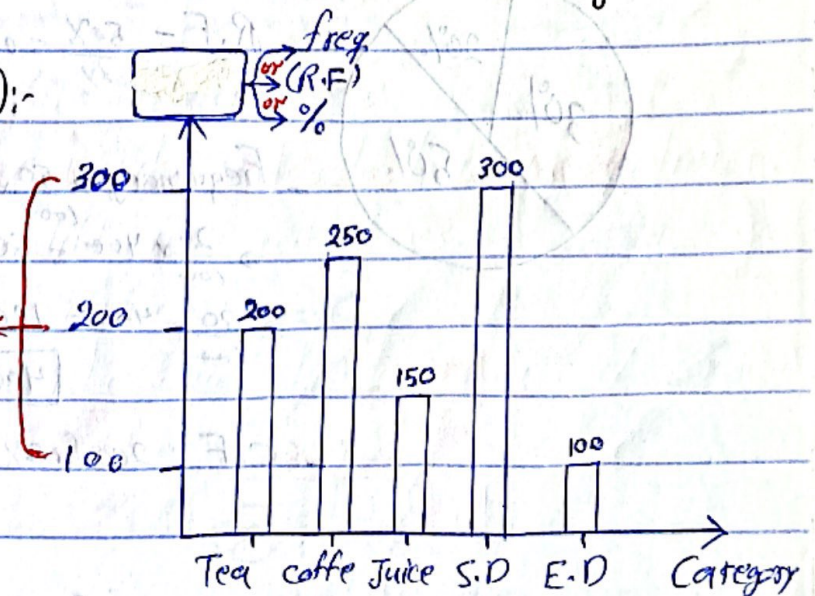 freq.
or (R.F)
):-
or %
300
300
250
200
200
150
100
100
Tea coffe Juice S.D E.D Category